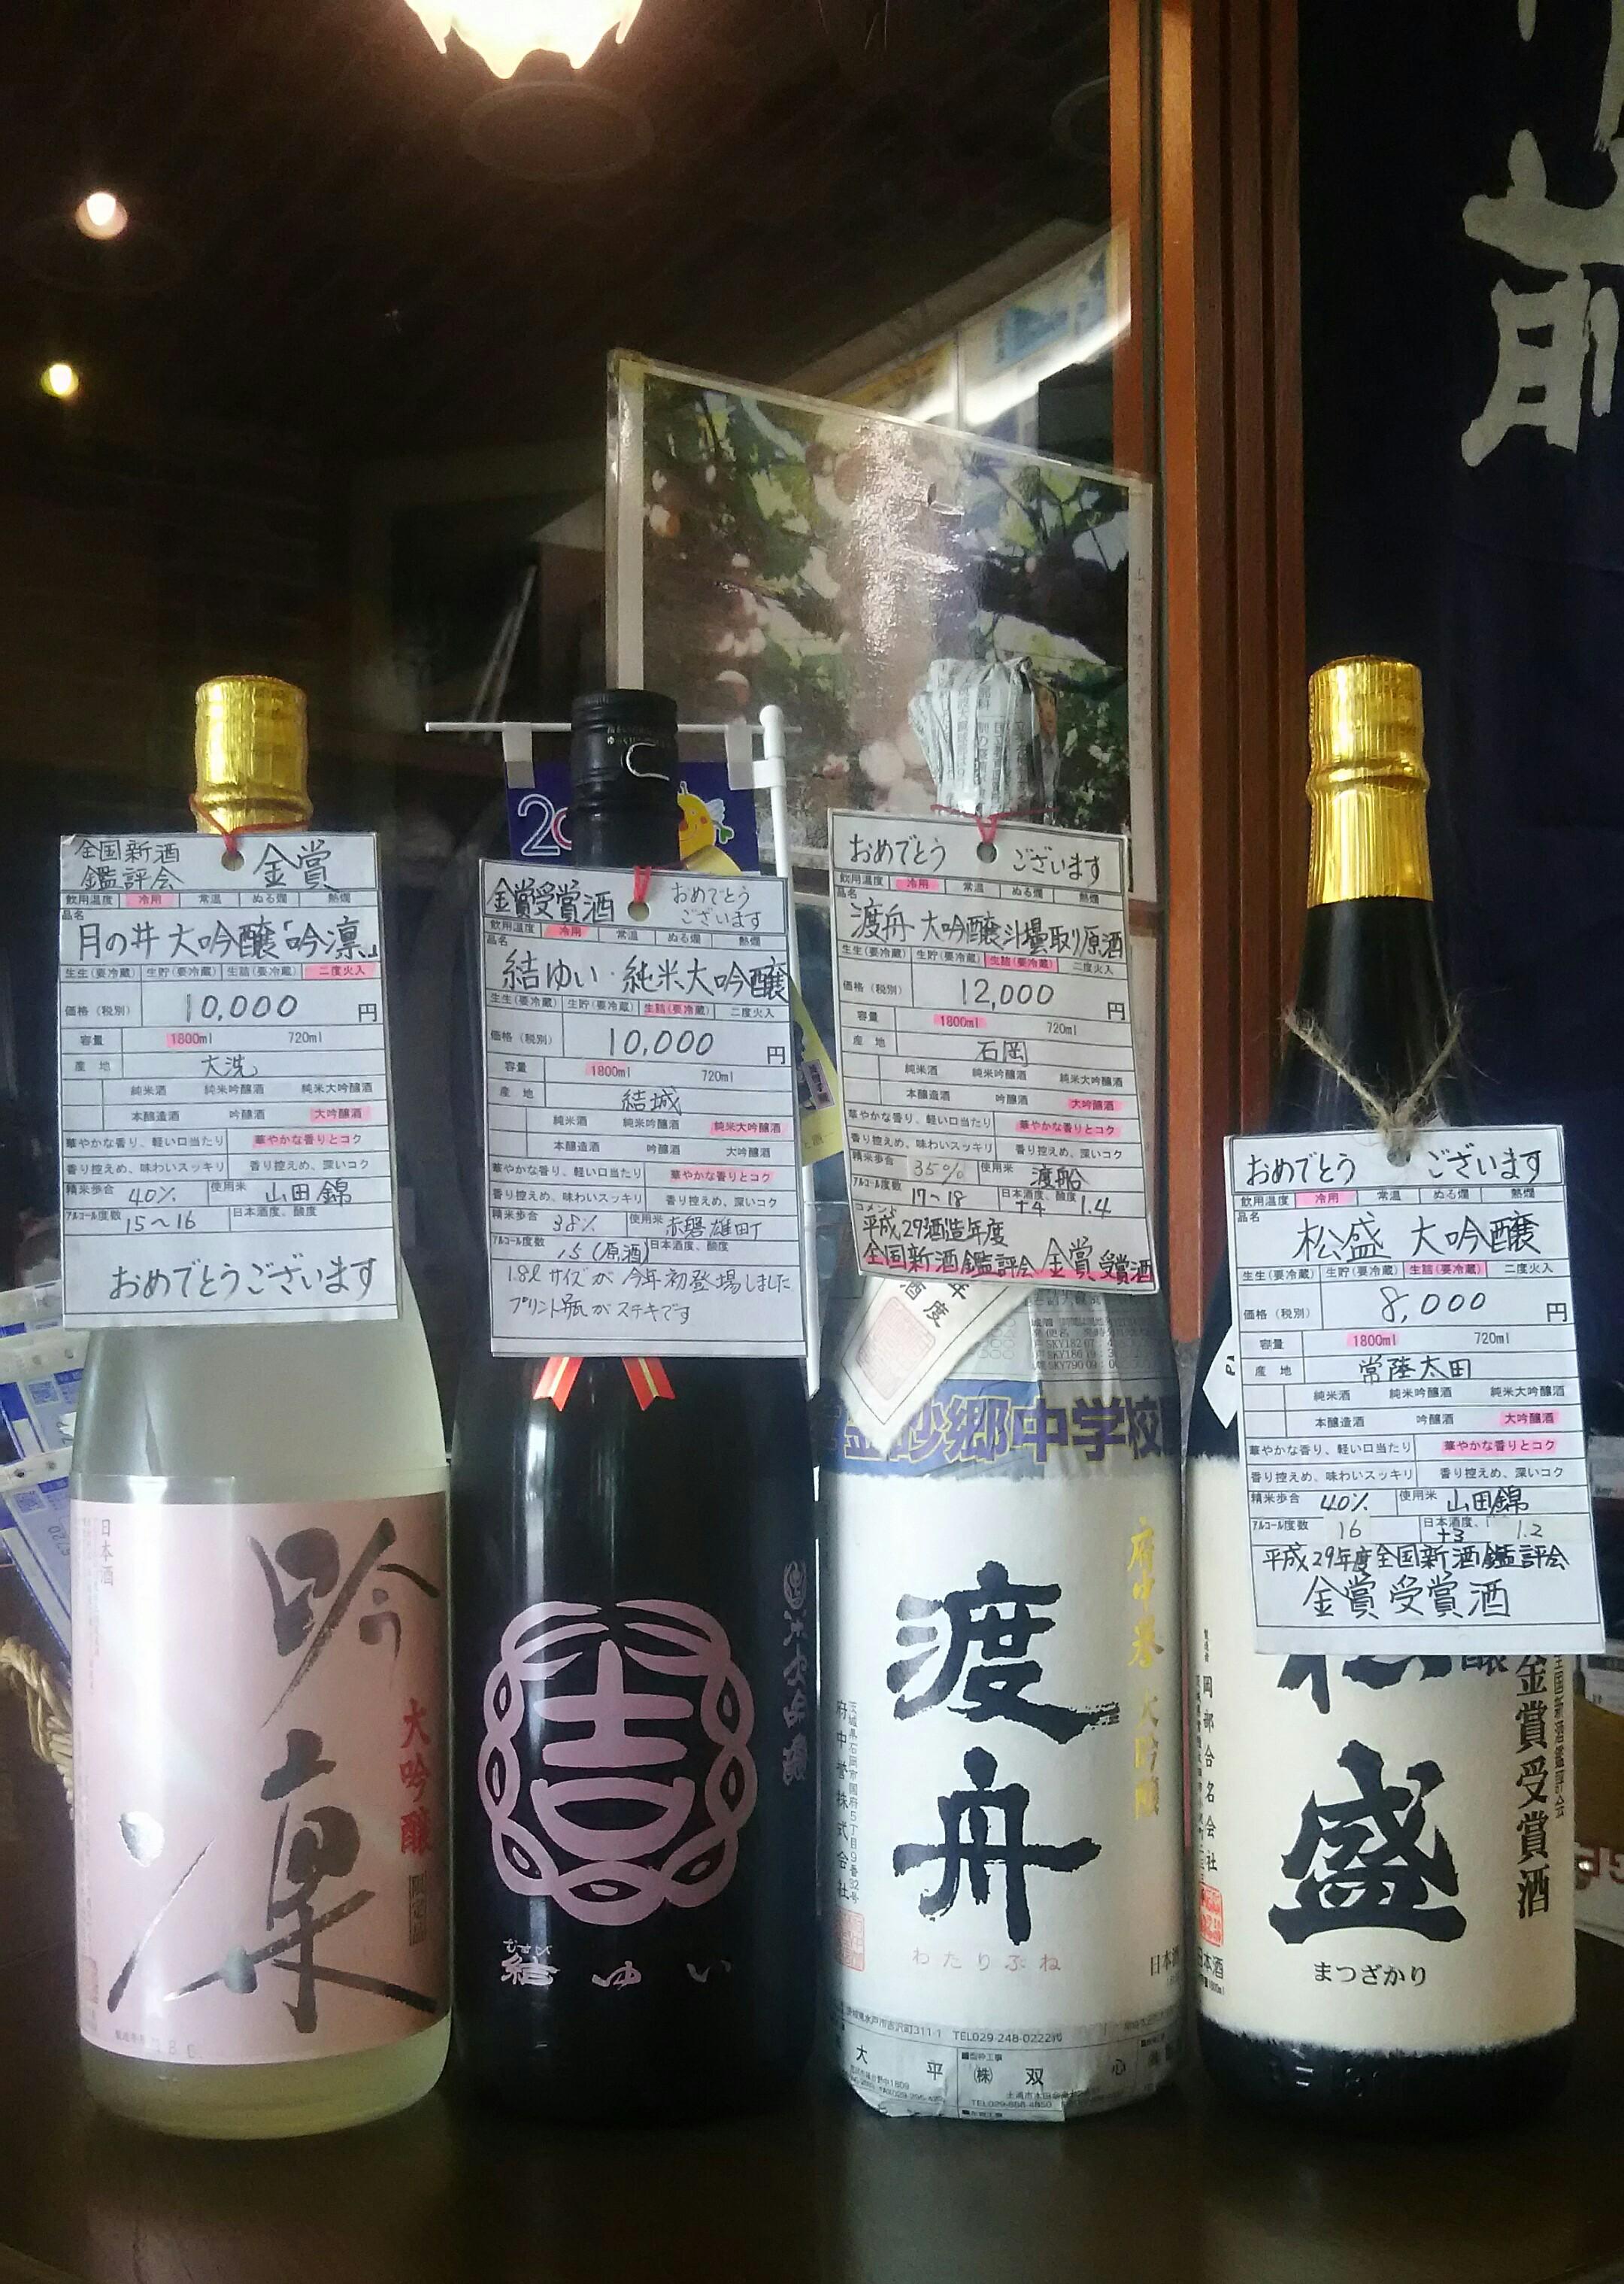 前
20
全国新酒
鑑評会 金賞
飲用温度 冷用 常温 ぬる燗 熱燗
品名
月の井 大吟醸「吟凛」
生生(要冷蔵) 生貯(要冷蔵) 生詰(要冷蔵) 二度火入
価格(税別) 10,000 円
容量 1800ml 720ml
産地 大洗
純米酒 純米吟醸酒 純米大吟醸酒
本醸造酒 吟醸酒 大吟醸酒
華やかな香り、軽い口当たり 華やかな香りとコク
香り控えめ、味わいスッキリ 香り控えめ、深いコク
精米歩合 40% 使用米 山田錦
アルコール度数 15~16 日本酒度、酸度
おめでとうございます
日本酒
吟
凛
大吟醸
金賞受賞酒 おめでとう
ございます
飲用温度 冷用 常温 ぬる燗 熱燗
品名
結ゆい・純米大吟醸
生生(要冷蔵) 生貯(要冷蔵) 生詰(要冷蔵) 二度火入
価格(税別) 10,000 円
容量 1800ml 720ml
産地 結城
純米酒 純米吟醸酒 純米大吟醸酒
本醸造酒 吟醸酒 大吟醸酒
華やかな香り、軽い口当たり 華やかな香りとコク
香り控えめ、味わいスッキリ 香り控えめ、深いコク
精米歩合 38% 使用米 赤磐雄町
アルコール度数 15(原酒) 日本酒度、酸度
1.8ℓ サイズが 今年初登場しました
プリント瓶が ステキです
吉
むすび
結ゆい
おめでとう ございます
飲用温度 冷用 常温 ぬる燗 熱燗
品名
渡舟 大吟醸斗壜取り原酒
生生(要冷蔵) 生貯(要冷蔵) 生詰(要冷蔵) 二度火入
価格(税別) 12,000 円
容量 1800ml 720ml
産地 石岡
純米酒 純米吟醸酒 純米大吟醸酒
本醸造酒 吟醸酒 大吟醸酒
華やかな香り、軽い口当たり 華やかな香りとコク
香り控えめ、味わいスッキリ 香り控えめ、深いコク
精米歩合 35% 使用米 渡船
アルコール度数 17~18 日本酒度、酸度 +4 1.4
コメント
平成29酒造年度
全国新酒鑑評会 金賞受賞酒
砂郷中学校
府中誉 大吟醸
渡
舟
わたりぶね
茨城県石岡市国府5丁目9番32号
府中誉株式会社
日本酒
水戸市吉沢町311-1 TEL029-248-0222
大平
(株)双心
おめでとう ございます
飲用温度 冷用 常温 ぬる燗 熱燗
品名
松盛 大吟醸
生生(要冷蔵) 生貯(要冷蔵) 生詰(要冷蔵) 二度火入
価格(税別) 8,000 円
容量 1800ml 720ml
産地 常陸太田
純米酒 純米吟醸酒 純米大吟醸酒
本醸造酒 吟醸酒 大吟醸酒
華やかな香り、軽い口当たり 華やかな香りとコク
香り控えめ、味わいスッキリ 香り控えめ、深いコク
精米歩合 40% 使用米 山田錦
アルコール度数 16 日本酒度、 +3 1.2
平成29年度全国新酒鑑評会
金賞受賞酒
全国新酒鑑評会
金賞受賞酒
盛
まつざかり
岡部合名会社
日本酒